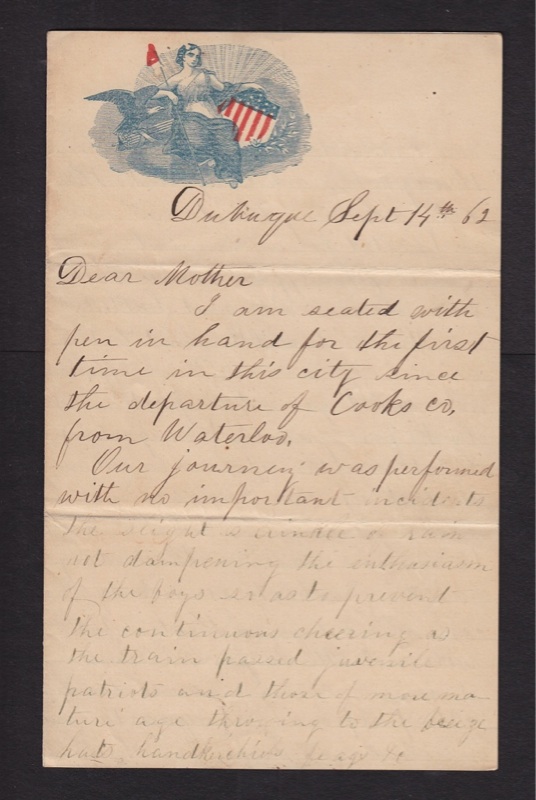 Dubuque Sept 14th 62
Dear Mother
I am seated with
pen in hand for the first
time in this city since
the departure of Cooks co,
from Waterloo,
Our journey was performed
with no important incidents
the slight sprinkle of rain
not dampening the enthusiasm
of the boys so as to prevent
the continuous cheering as
the train passed juvenile
patriots and those of more ma-
ture age throwing to the
hats, handkerchiefs flags &c